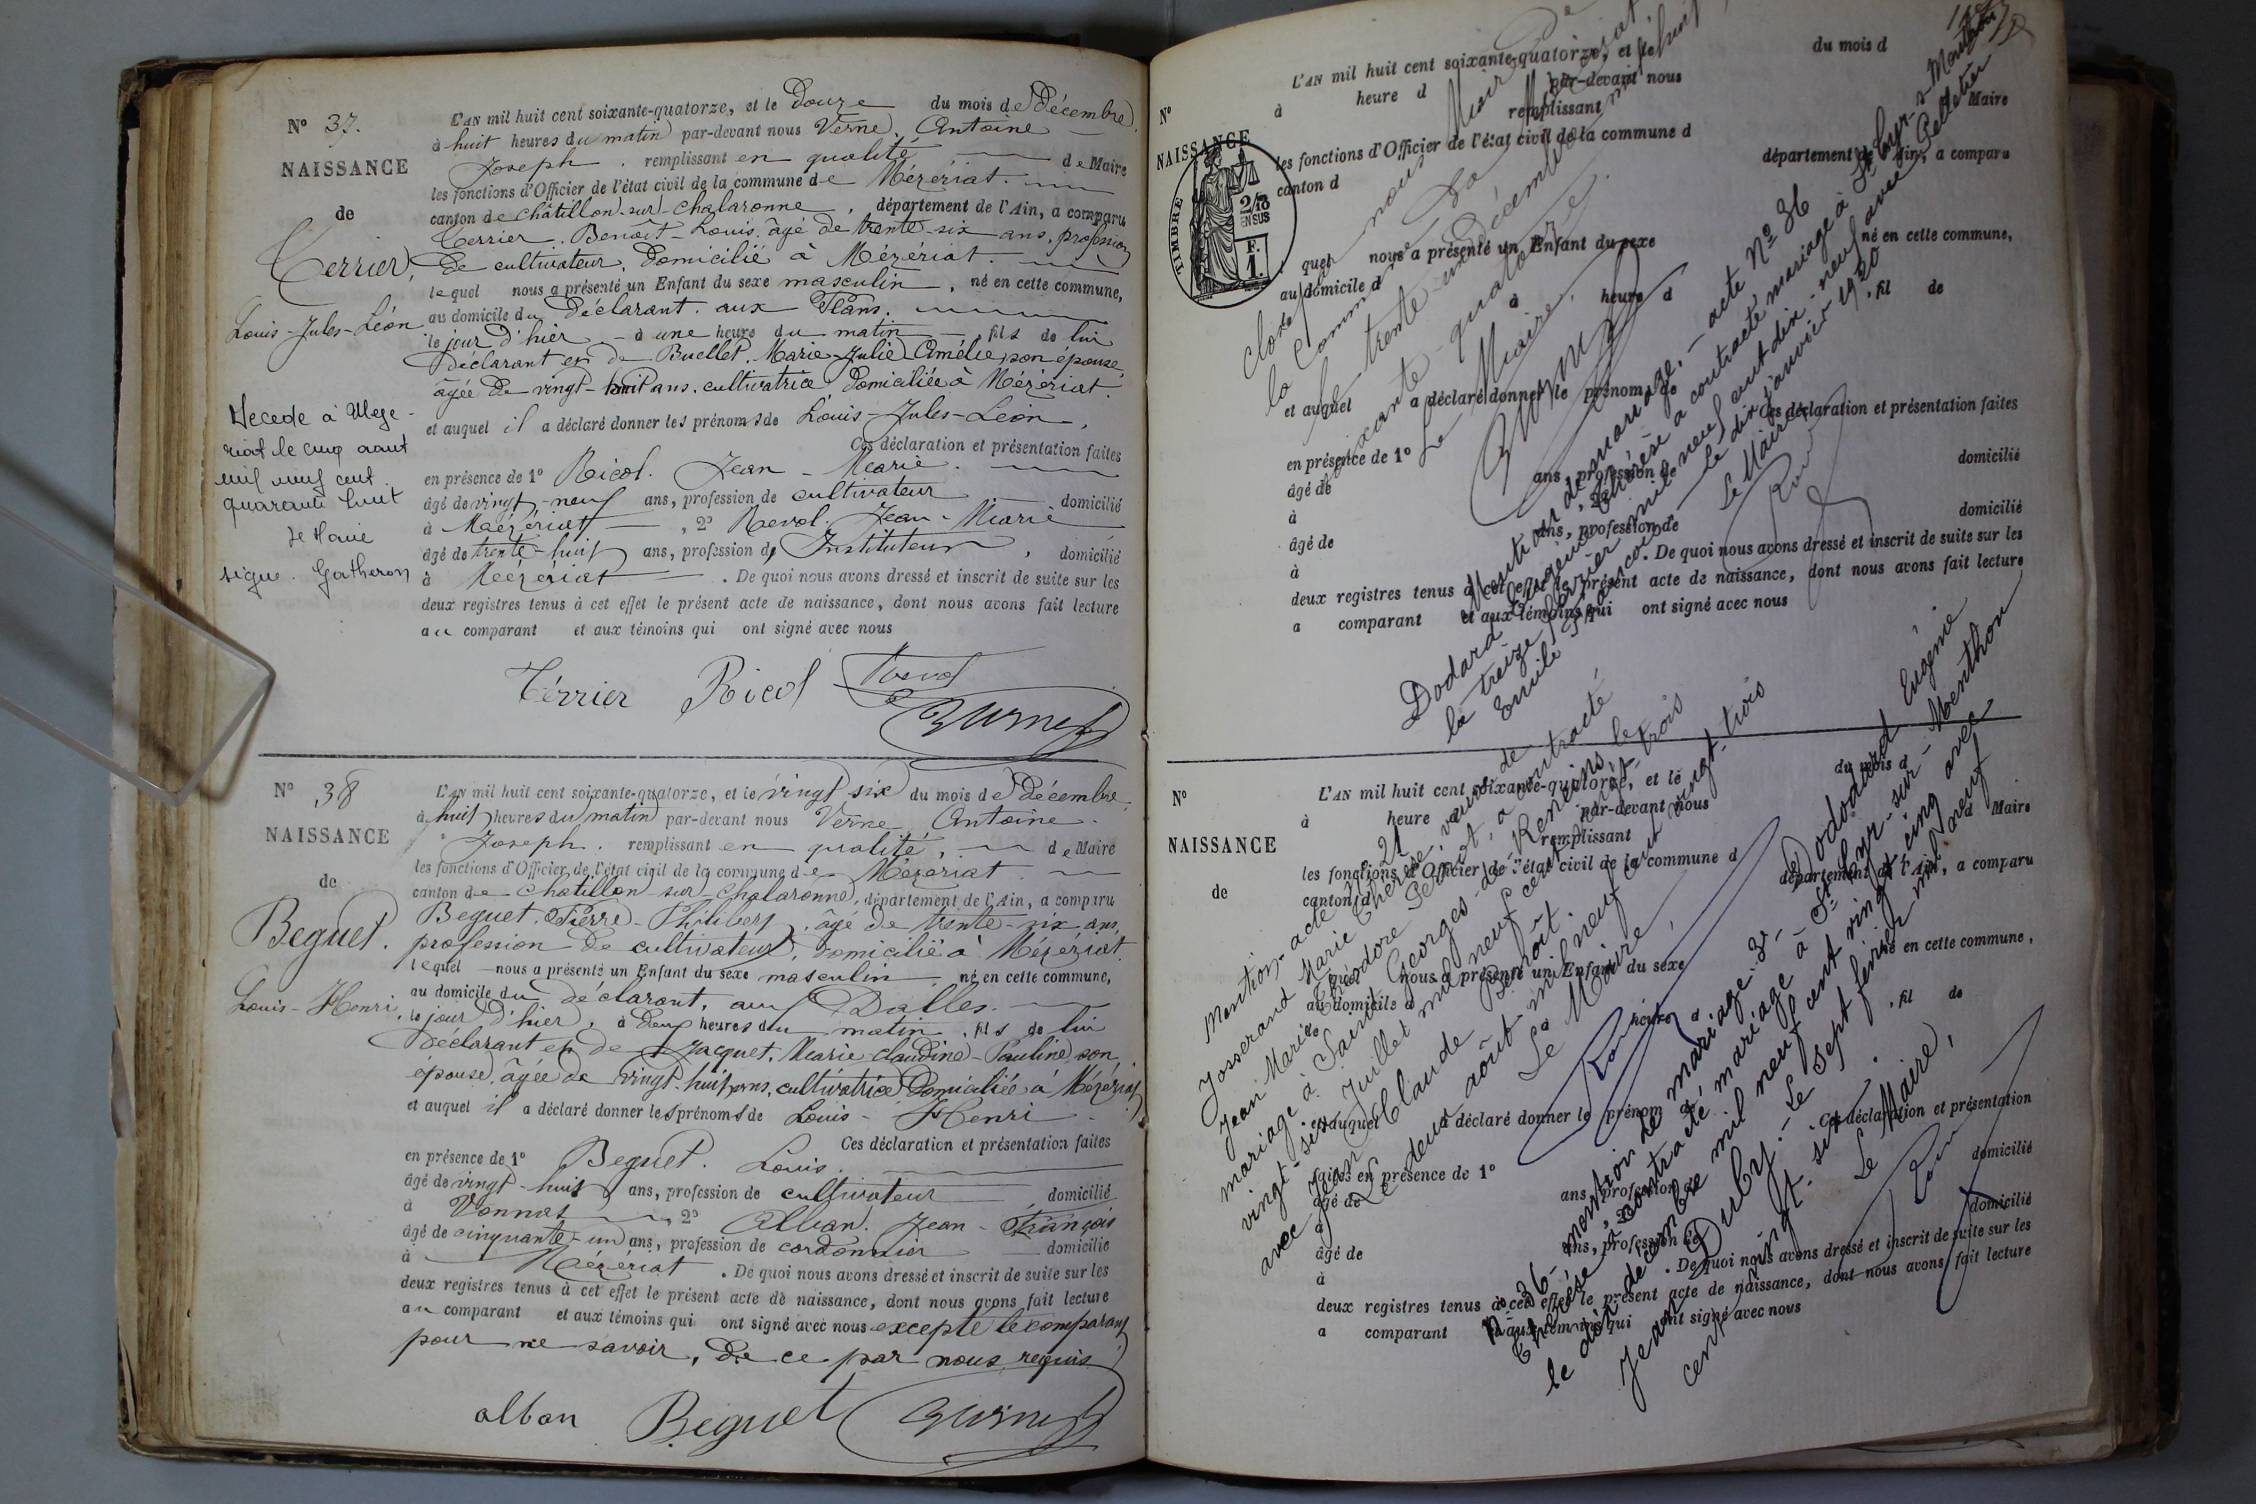 N° 37.
NAISSANCE
de
Terrier,
Louis-Jules-Léon
Décédé à Mézé-
riat le cinq aout
mil neuf cent
quarante huit
le Maire
signé. Gatheron
L'AN mil huit cent soixante-quatorze, et le Douze du mois de Décembre,
à huit heures du matin par-devant nous Verne, Antoine
Joseph, remplissant en qualité de Maire
les fonctions d'Officier de l'état civil de la commune de Mézériat.
canton de Châtillon-sur-Chalaronne, département de l'Ain, a comparu
Terrier, Benoît-Louis, âgé de trente-six ans, profession
de cultivateur, domicilié à Mézériat.
lequel nous a présenté un Enfant du sexe masculin, né en cette commune,
au domicile du Déclarant, aux Plans,
le jour d'hier, à une heure du matin, fils de lui
Déclarant et de Buellet, Marie-Julie Amélie, son épouse,
âgée de vingt-huit ans, cultivatrice domiciliée à Mézériat.
et auquel il a déclaré donner les prénoms de Louis-Jules-Léon,
Ces déclaration et présentation faites
en présence de 1° Ricol. Jean-Marie.
âgé de vingt-neuf ans, profession de cultivateur domicilié
à Mézériat, 2° Revol. Jean-Marie
âgé de trente-huit ans, profession de Instituteur, domicilié
à Mézériat. De quoi nous avons dressé et inscrit de suite sur les
deux registres tenus à cet effet le présent acte de naissance, dont nous avons fait lecture
au comparant et aux témoins qui ont signé avec nous
Térrier Ricol Revol
N° 38
NAISSANCE
de
Beguet.
Louis-Henri,
L'AN mil huit cent soixante-quatorze, et le vingt six du mois de Décembre,
à huit heures du matin par-devant nous Verne, Antoine
Joseph, remplissant en qualité, de Maire
les fonctions d'Officier de l'état civil de la commune de Mézériat.
canton de Châtillon sur Chalaronne, département de l'Ain, a comparu
Beguet, Pierre-Philibert, âgé de trente-six ans,
profession de cultivateur, domicilié à Mézériat,
lequel nous a présenté un Enfant du sexe masculin, né en cette commune,
au domicile du déclarant, aux Dalles.
le jour d'hier, à deux heures du matin, fils de lui
Déclarant et de Jacquet, Marie Claudine-Pauline son
épouse, âgée de vingt-huit ans, cultivatrice domiciliée à Mézériat
et auquel il a déclaré donner les prénoms de Louis-Henri
Ces déclaration et présentation faites
en présence de 1° Beguet. Louis.
âgé de vingt-huit ans, profession de cultivateur domicilié
à Vonnas, 2° Alban. Jean-François
âgé de cinquante-un ans, profession de cordonnier domicilié
à Mézériat. De quoi nous avons dressé et inscrit de suite sur les
deux registres tenus à cet effet le présent acte de naissance, dont nous avons fait lecture
au comparant et aux témoins qui ont signé avec nous excepté le comparant
pour ne savoir, de ce par nous requis
alban Beguet
N°
NAISSANCE
TIMBRE
2/10
EN SUS
F.
1.
L'AN mil huit cent soixante-quatorze, et le du mois d
à heure d par-devant nous
remplissant Maire
les fonctions d'Officier de l'état civil de la commune d
canton d département de l'Ain, a comparu
quel nous a présenté un Enfant du sexe né en cette commune,
au domicile d
à heure d , fil de
et auquel a déclaré donner le prénom de
Ces déclaration et présentation faites
en présence de 1°
âgé de ans, profession de domicilié
à
âgé de ans, profession de domicilié
à . De quoi nous avons dressé et inscrit de suite sur les
deux registres tenus à cet effet le présent acte de naissance, dont nous avons fait lecture
a comparant et aux témoins qui ont signé avec nous
Clos par nous Maire
la Commune
le trente-un Décembre mil huit
soixante-quatorze.
Le Maire,
Mention de mariage. - acte N° 36
Dodard Eugénie Thérèse a contracté mariage à
le treize février mil neuf cent dix-neuf avec
Emile le dix janvier 1920
Le Maire,
N°
NAISSANCE
de
L'AN mil huit cent soixante-quatorze, et le du mois d
à heure par-devant nous
remplissant d Maire
les fonctions d'Officier de l'état civil de la commune d
canton d département de l'Ain, a comparu
quel nous a présenté un Enfant du sexe né en cette commune,
au domicile d
heure d , fil de
et auquel a déclaré donner le prénom
Ces déclaration et présentation
faites en présence de 1°
âgé de ans, profession de domicilié
à
âgé de ans, profession de domicilié
à . De quoi nous avons dressé et inscrit de suite sur les
deux registres tenus à cet effet le présent acte de naissance, dont nous avons fait lecture
a comparant et aux témoins qui ont signé avec nous
Mention - acte 21
Josserand Marie Thérèse, veuve de
Jean Marie Théodore a contracté
mariage à Saint Georges-de-Reneins le
vingt-six Juillet mil neuf cent vingt-trois
avec Jean Claude Benoît
Le deux août mil neuf cent vingt-trois
Le Maire,
N° 36 - mention de mariage - Dodard Eugénie
Thérèse a contracté mariage à St Cyr-sur-Menthon
le dix décembre mil neuf cent vingt cinq avec
Jean Duby. - Le sept février mil neuf
cent vingt-six.
Le Maire,